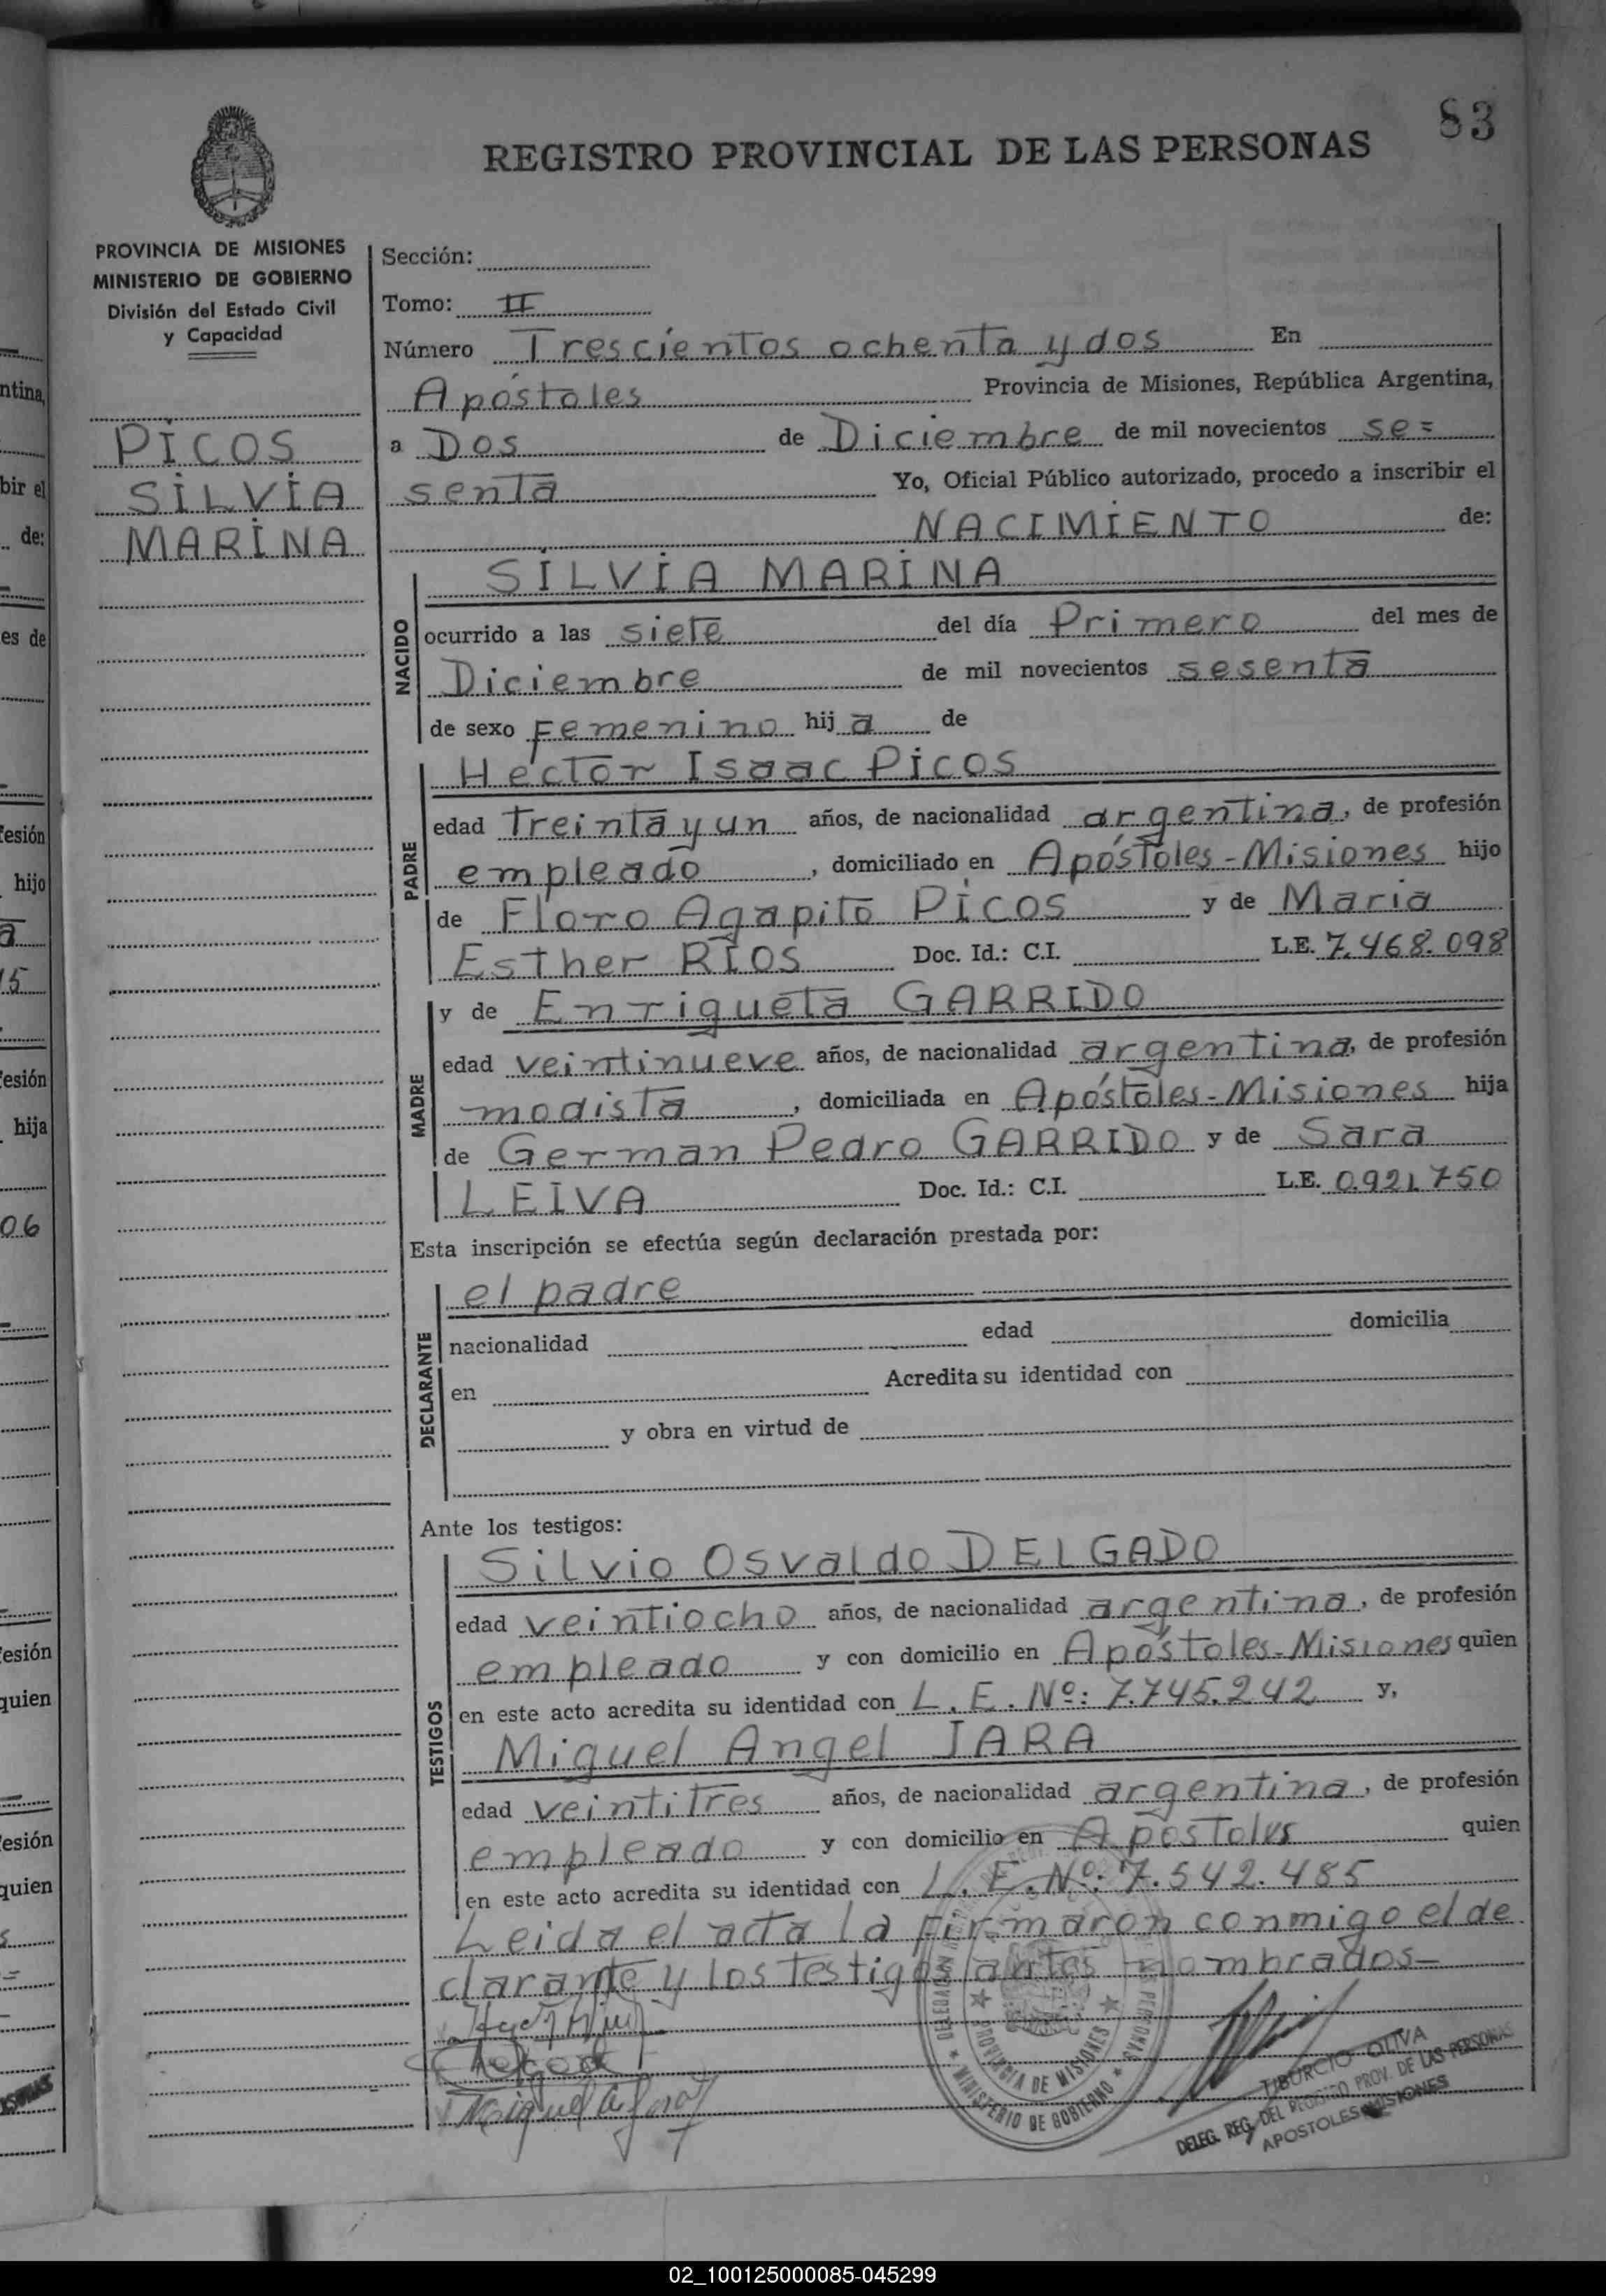 83
REGISTRO PROVINCIAL DE LAS PERSONAS
PROVINCIA DE MISIONES
MINISTERIO DE GOBIERNO
División del Estado Civil
y Capacidad
PICOS
SILVIA
MARINA
Sección:
Tomo: II
Número Trescientos ochenta y dos En
Apóstoles Provincia de Misiones, República Argentina,
a Dos de Diciembre de mil novecientos se=
senta Yo, Oficial Público autorizado, procedo a inscribir el
NACIMIENTO de:
NACIDO
SILVIA MARINA
ocurrido a las siete del día Primero del mes de
Diciembre de mil novecientos sesenta
de sexo Femenino hij a de
PADRE
Hector Isaac Picos
edad treinta y un años, de nacionalidad argentina, de profesión
empleado, domiciliado en Apóstoles-Misiones hijo
de Floro Agapito Picos y de Maria
Esther RIOS Doc. Id.: C.I. L.E. 7.468.098
MADRE
y de Enriqueta GARRIDO
edad veintinueve años, de nacionalidad argentina, de profesión
modista, domiciliada en Apóstoles-Misiones hija
de German Pedro GARRIDO y de Sara
LEIVA Doc. Id.: C.I. L.E. 0.921.750
Esta inscripción se efectúa según declaración prestada por:
DECLARANTE
el padre
nacionalidad edad domicilia
en Acredita su identidad con
y obra en virtud de
Ante los testigos:
TESTIGOS
Silvio Osvaldo DELGADO
edad veintiocho años, de nacionalidad argentina, de profesión
empleado y con domicilio en Apóstoles-Misiones quien
en este acto acredita su identidad con L.E.Nº: 7.745.242 y,
Miguel Angel JARA
edad veintitres años, de nacionalidad argentina, de profesión
empleado y con domicilio en Apostoles quien
en este acto acredita su identidad con L.E.Nº: 7.542.485
Leida el acta la firmaron conmigo el de
clarante y los testigos antes nombrados—
PROVINCIA DE MISIONES
MINISTERIO DE GOBIERNO
TIBURCIO OLIVA
DELEG. REG. DEL REGISTRO PROV. DE LAS PERSONAS
APOSTOLES MISIONES
ntina,
bir el
de:
es de
esión
hijo
a
15
esión
hija
06
esión
quien
esión
quien
02_100125000085-045299